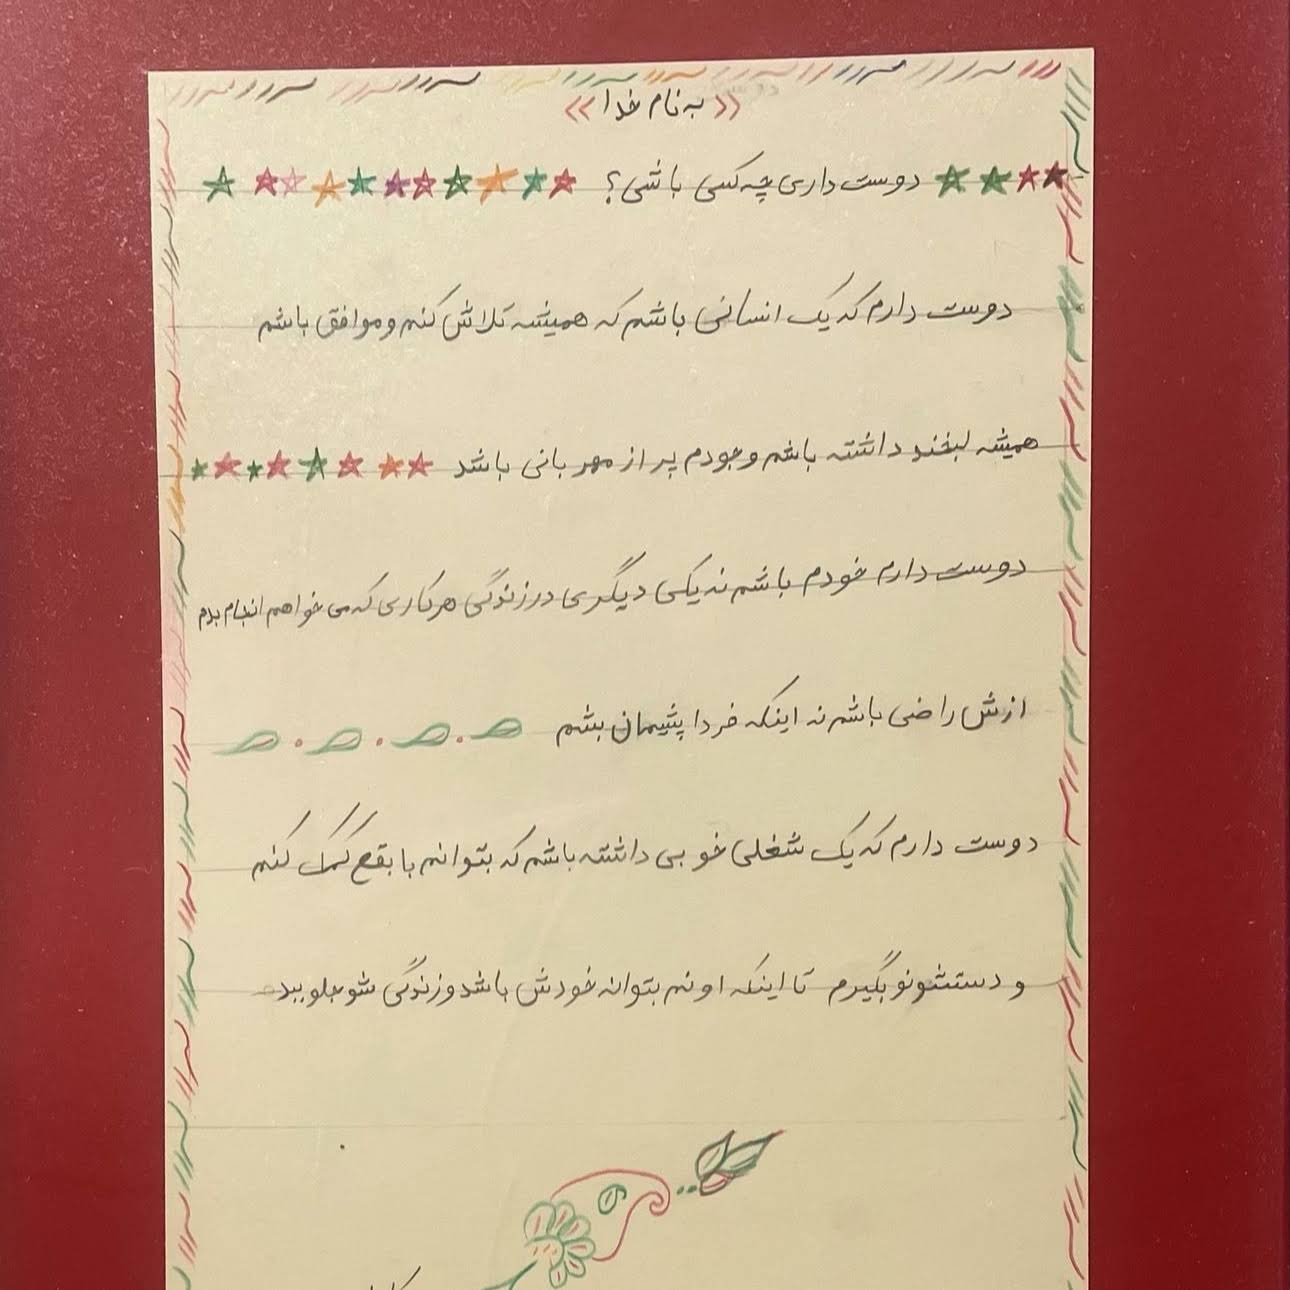 «به نام خدا»
دوست داری چه کسی باشی؟
دوست دارم که یک انسانی باشم که همیشه تلاش کنم و موافق باشم
همیشه لبخند داشته باشم وجودم پر از مهربانی باشد
دوست دارم خودم باشم نه یکی دیگری در زندگی هر کاری که می خواهم انجام بدم
ازش راضی باشم نه اینکه فردا پشیمان بشم
دوست دارم که یک شغلی خوبی داشته باشم که بتوانم با بقع کمک کنم
و دستشونو بگیرم تا اینکه اونم بتوانه خودش باشد و زندگی شو جلو ببد